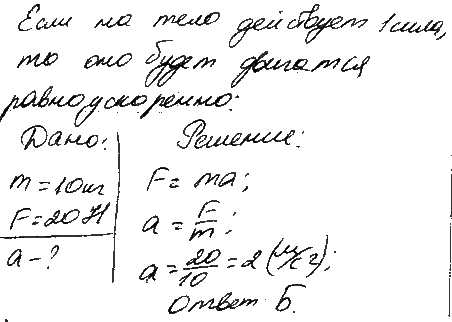 Если на тело действует 1 сила,
то оно будет двигатся
равноускоренно:
Дано:
m = 10 кг
F = 20 Н
a - ?
Решение:
F = ma;
a = F/m;
a = 20/10 = 2 (м/с2);
Ответ Б.